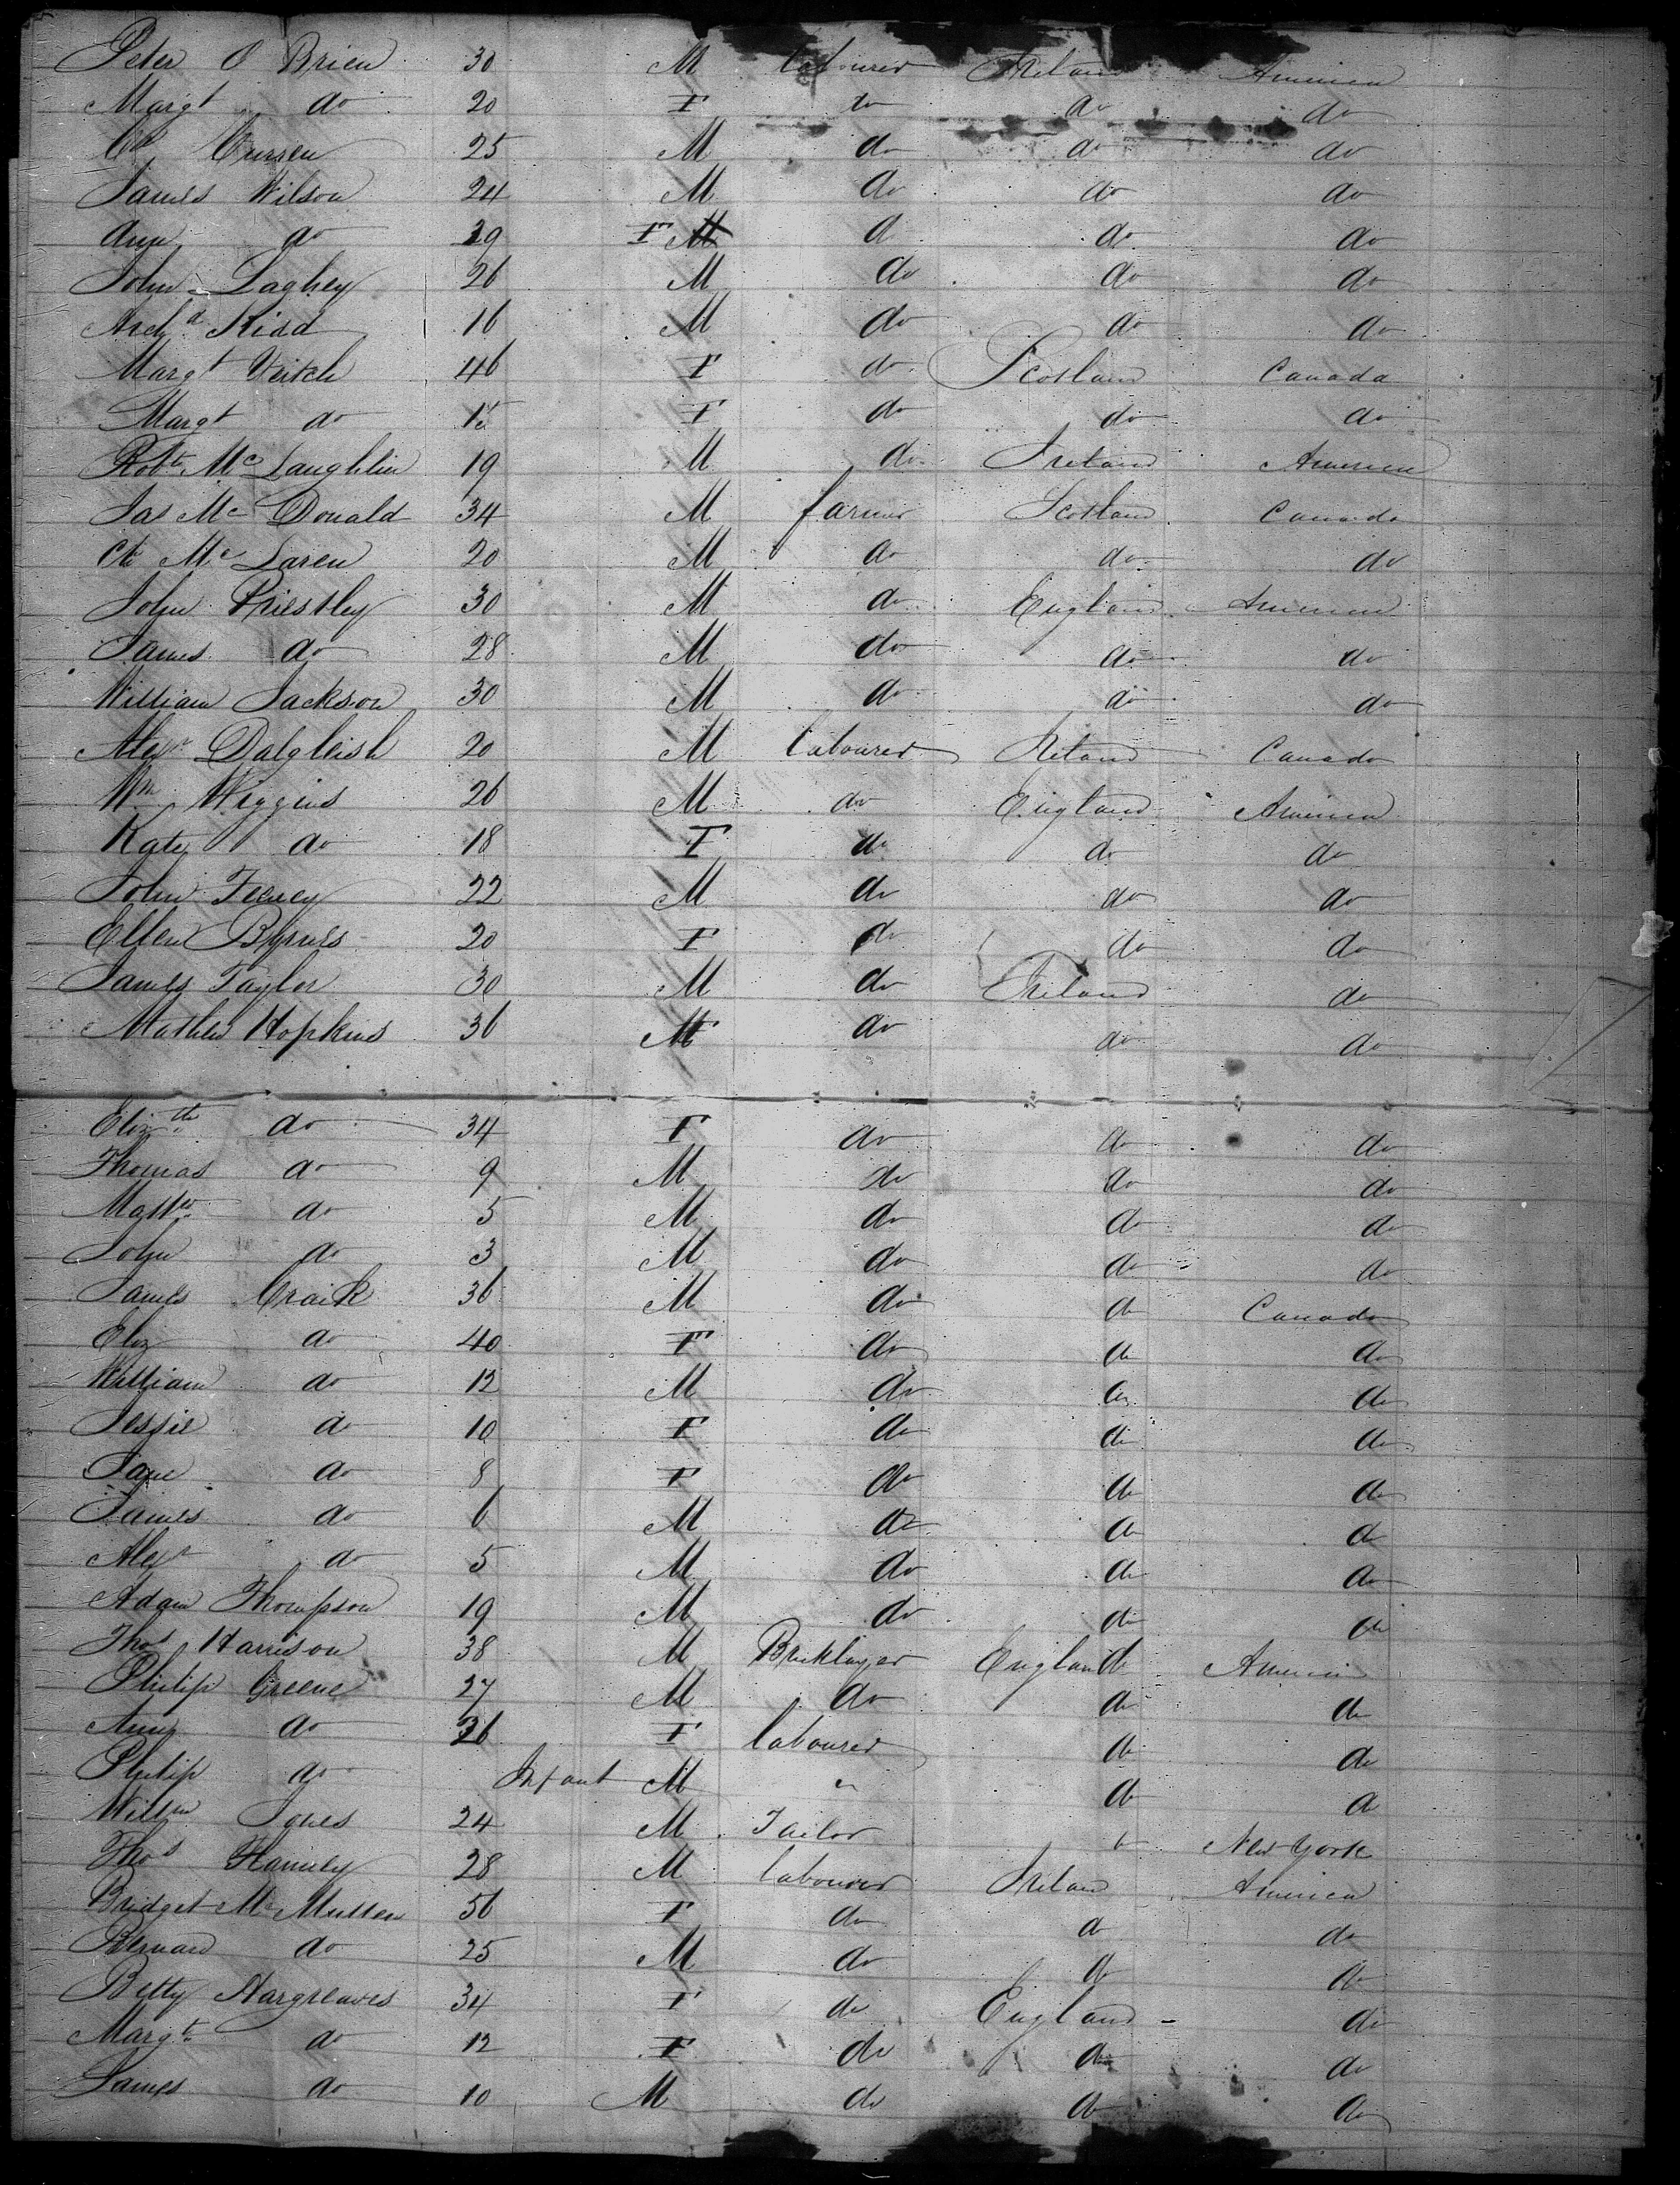 Peter O Brien 30 M labourer Ireland America
Margt do 20 F do do do
Cursen 25 M do do do
James Wilson 24 M do do do
Ann do 29 F M d do do
John Laghey 26 M do do do
Archd Kidd 16 M do do do
Margt Veitch 46 F do Scotland Canada
Margt do F do do do
Robt Mc Laughlin 19 M do Ireland America
Jas Mc Donald 34 M farmer Scotland Canada
Mc Laren 20 M do do do
John Priestley 30 M do England America
James do 28 M do do do
William Jackson 30 M do do do
Alexr Dalgleish 20 M labourer Ireland Canada
Wm Wiggins 26 M do England America
Kate do 18 F do do do
John Feeney 22 M do do do
Ellen Byrnes 20 F do do do
James Taylor 30 M do Ireland do
Mathew Hopkins 36 M do do do
Elizth do 34 F do do do
Thomas do 9 M do do do
Mattw do 5 M do do do
John do 3 M do do do
James Craik 36 M do do Canada
Eliz do 40 F do do do
William do 12 M do do do
Jessie do 10 F do do do
Jane do 8 F do do do
James do 6 M do do do
Alexr do 5 M do do do
Adam Thompson 19 M do do do
Thos Harrison 38 M Bricklayer England America
Philip Greene 27 M do do do
Ann do 26 F labourer do do
Philip do Infant M " do do
Willm Jones 24 M Tailor New York
Thos Hamely 28 M labourer Ireland America
Bridget Mc Mullen 56 F do do do
Bernard do 25 M do do do
Betty Hargreaves 34 F do England do
Margt do 12 F do do do
James do 10 M do do do